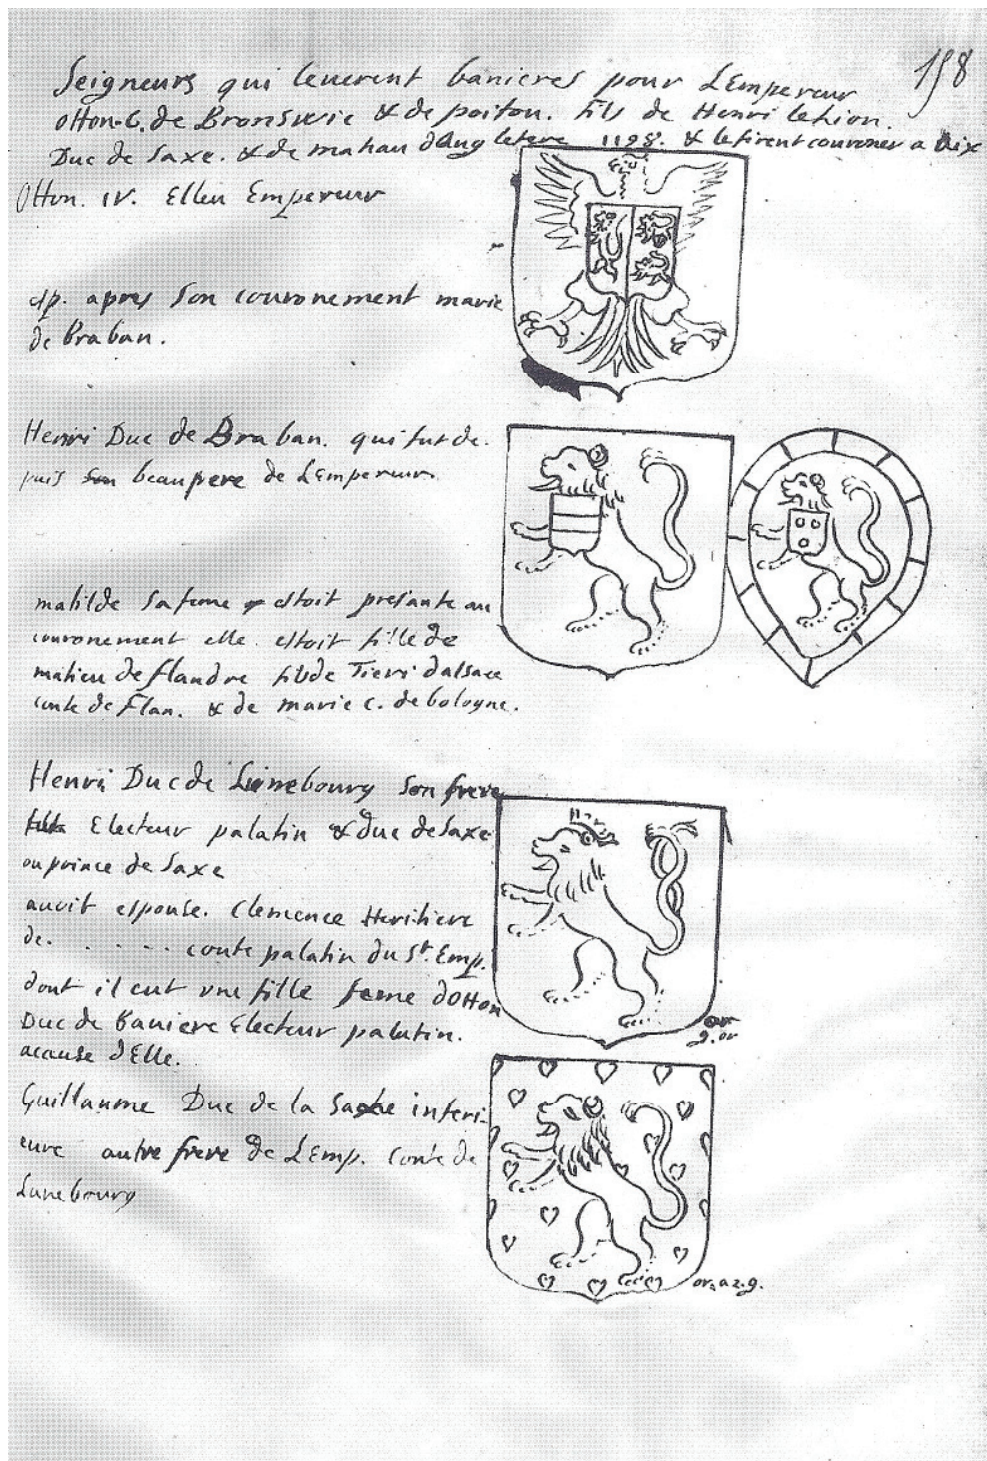 158
Seigneurs qui leverent banieres pour LEmpereur
otton. C. de Bronswic & de poitou. fils de Henri le Lion.
Duc de Saxe. & de mahau dAngletere 1198. & le firent couroner a Aix
Otton. IV. Elleu Empereur
esp. apres son couronement marie
de Braban.
Henri Duc de Braban. qui fut de.
puis son beaupere de LEmpereur.
matilde sa feme estoit presante au
couronement elle estoit fille de
matieu de flandre fils de Tieri dalsace
conte de Flan. & de marie c. de bologne.
Henri Duc de Lunebourg son frere
Electeur palatin & duc de Saxe
ou prince de Saxe
auoit espouse. Clemence Heritiere
de. . . . . . conte palatin du St. Emp.
dont il eut vne fille feme dOtton
Duc de Baviere Electeur palatin.
acause dElle.
or
g. or
Guillaume Duc de la Saxe inferi-
eure autre frere de LEmp. conte de
Lunebourg
or. az. g.